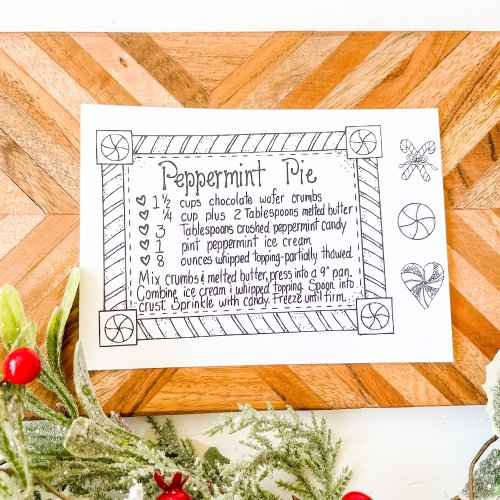 Peppermint Pie
1 ½ cups chocolate wafer crumbs
¼ cup plus 2 Tablespoons melted butter
3 Tablespoons crushed peppermint candy
1 pint peppermint ice cream
8 ounces whipped topping-partially thawed.
Mix crumbs & melted butter, press into a 9" pan.
Combine ice cream & whipped topping. Spoon into
crust. Sprinkle with candy. Freeze until firm.